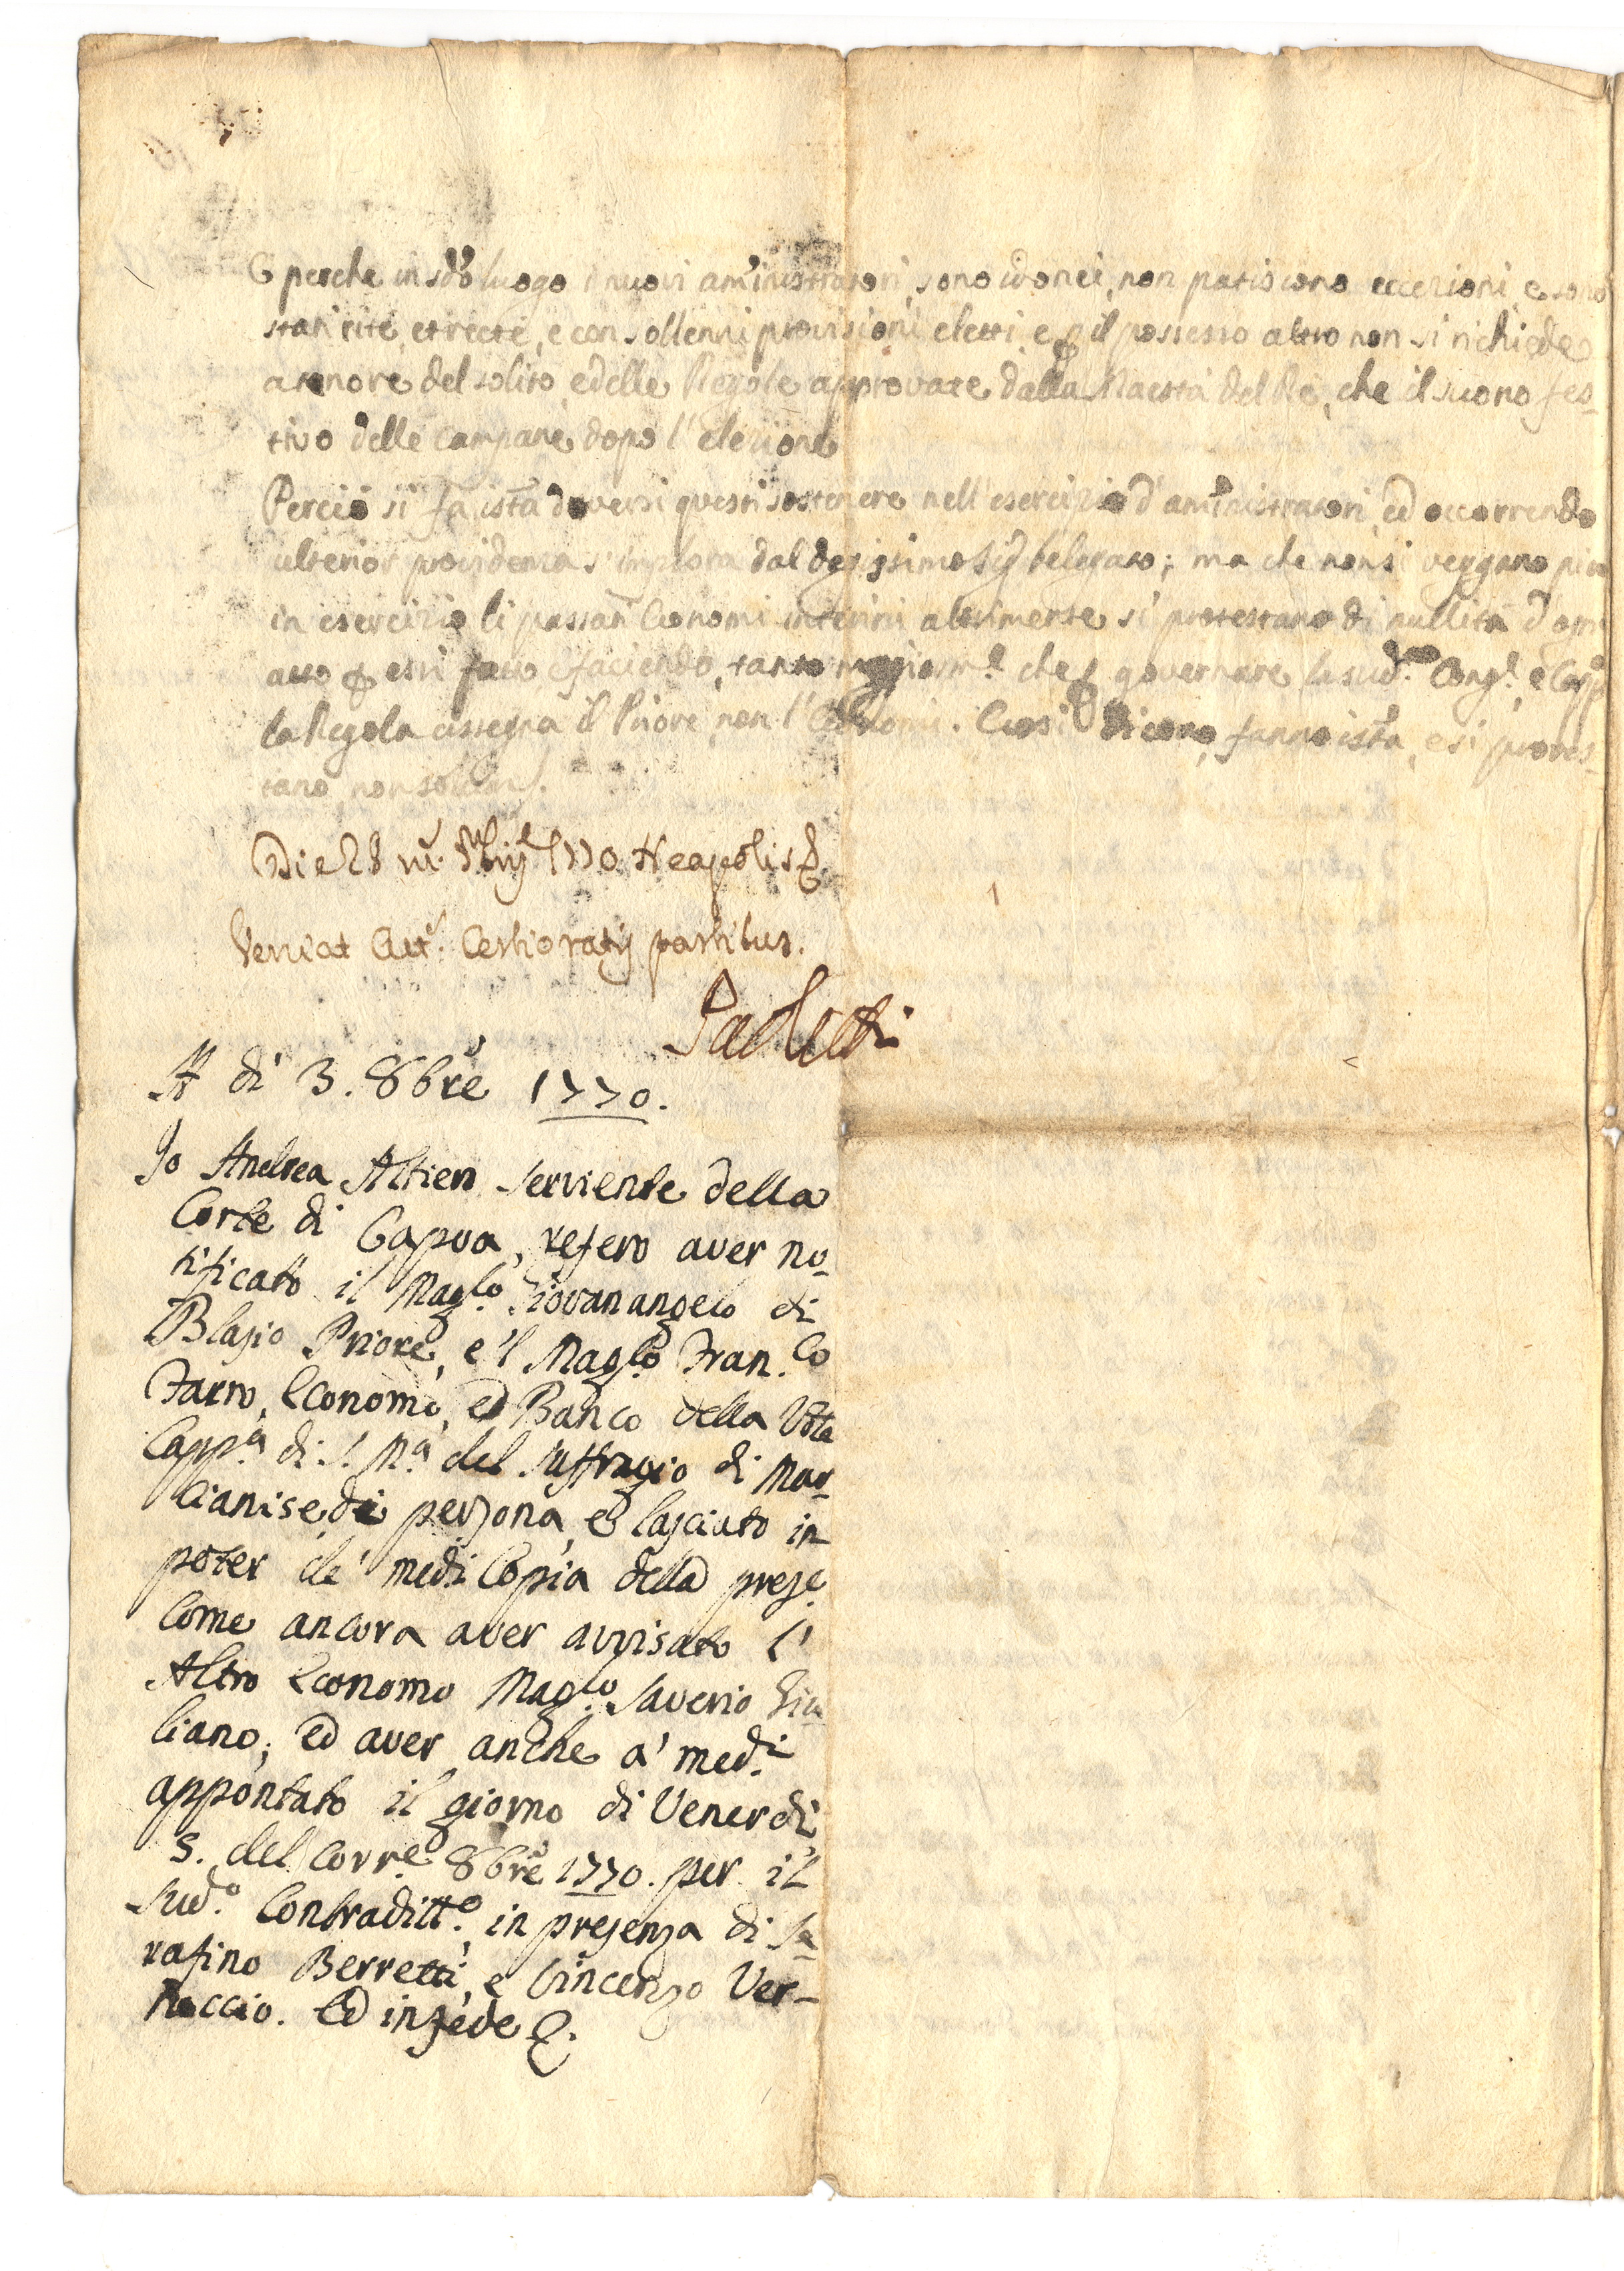 E perche in sd̃o luogo i nuovi am̃inistratori, sono idonei, non patiscono eccezioni, e sono
stati rite, et recte, e con sollenni provisioni eletti, e p il possesso altro non si richiede
a tenore del solito, e delle Regole approvate dalla Maestà del Re, che il suono fes-
tivo delle campane dopo l'elezione
Perciò si fa ista doversi questi sostenere nell'esercizio d'am̃inistratori, ed occorrendo
ulterior providenza s'implora dal degissimo Sig. Delegato; ma che non si veggano più
in esercizio li passati Economi interini altrimente si protestano di nullità d'ogni
atto p essi fatto, e faciendo, tanto maggiorm.e che p governare la sud.a Cong.e, e Capp.a
la Regola assegna il Priore, non l'Economi. Così dicono, fanno ista, e si protes-
tano, non solum
Die 28 m. 1770 Neapolis
Veniat certioratis partibus.
A dì 3. 8bre 1770.
Io Andrea Altieri serviente della
Corte di Capua, refero aver no-
tificato il Mag.co Giovanangelo di
Blasio Priore, e 'l Mag.co Fran.co
Farro, Economo, ed Banco della Vñle
Capp.a di S. M.a del Suffragio di Mar-
cianise di persona, e lasciato in
poter de' med.i Copia della prese.
Come ancora aver avvisato l'
Altro Economo Mag.co Saverio Giu-
liano; ed aver anche a' med.i
appontato il giorno di Venerdì
5. del corr.e 8bre 1770. per il
Sud.o Contraditt.o, in presenza di Se-
rafino Berretti, e Vincenzo Ver-
naccio. Ed in fede